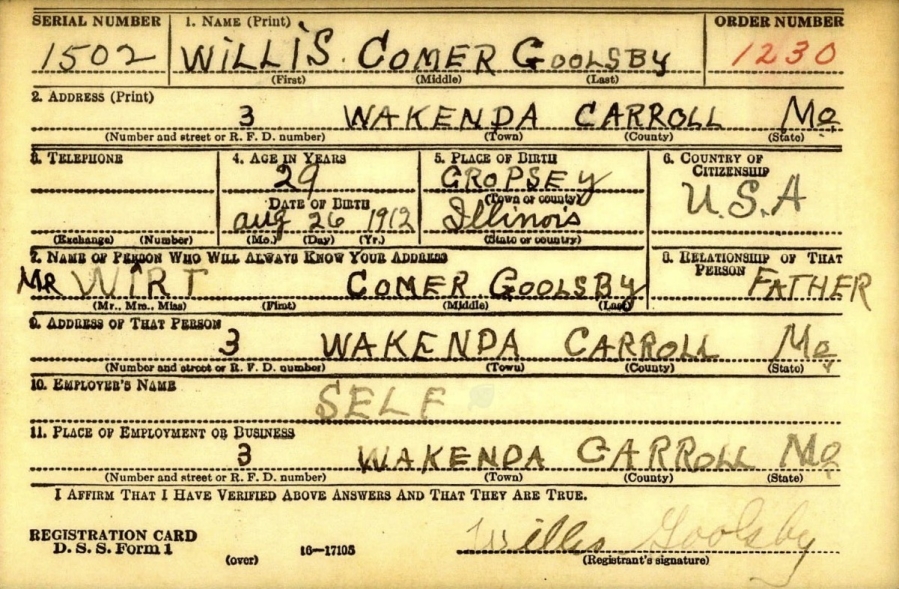 SERIAL NUMBER 1. NAME (Print) ORDER NUMBER
1502 WILLIS COMER GOOLSBY 1230
(First) (Middle) (Last)
2. ADDRESS (Print)
3 WAKENDA CARROLL Mo
(Number and street or R. F. D. number) (Town) (County) (State)
3. TELEPHONE 4. AGE IN YEARS 5. PLACE OF BIRTH 6. COUNTRY OF CITIZENSHIP
29 CROPSEY U.S.A
DATE OF BIRTH (Town or county)
Aug 26 1912 Illinois
(Exchange) (Number) (Mo.) (Day) (Yr.) (State or country)
7. NAME OF PERSON WHO WILL ALWAYS KNOW YOUR ADDRESS 8. RELATIONSHIP OF THAT PERSON
MR WIRT COMER GOOLSBY FATHER
(Mr., Mrs., Miss) (First) (Middle) (Last)
9. ADDRESS OF THAT PERSON
3 WAKENDA CARROLL Mo
(Number and street or R. F. D. number) (Town) (County) (State)
10. EMPLOYER'S NAME
SELF
11. PLACE OF EMPLOYMENT OR BUSINESS
3 WAKENDA CARROLL Mo
(Number and street or R. F. D. number) (Town) (County) (State)
I AFFIRM THAT I HAVE VERIFIED ABOVE ANSWERS AND THAT THEY ARE TRUE.
REGISTRATION CARD
D. S. S. Form 1 (over) 16-17105
Willis Goolsby
(Registrant's signature)